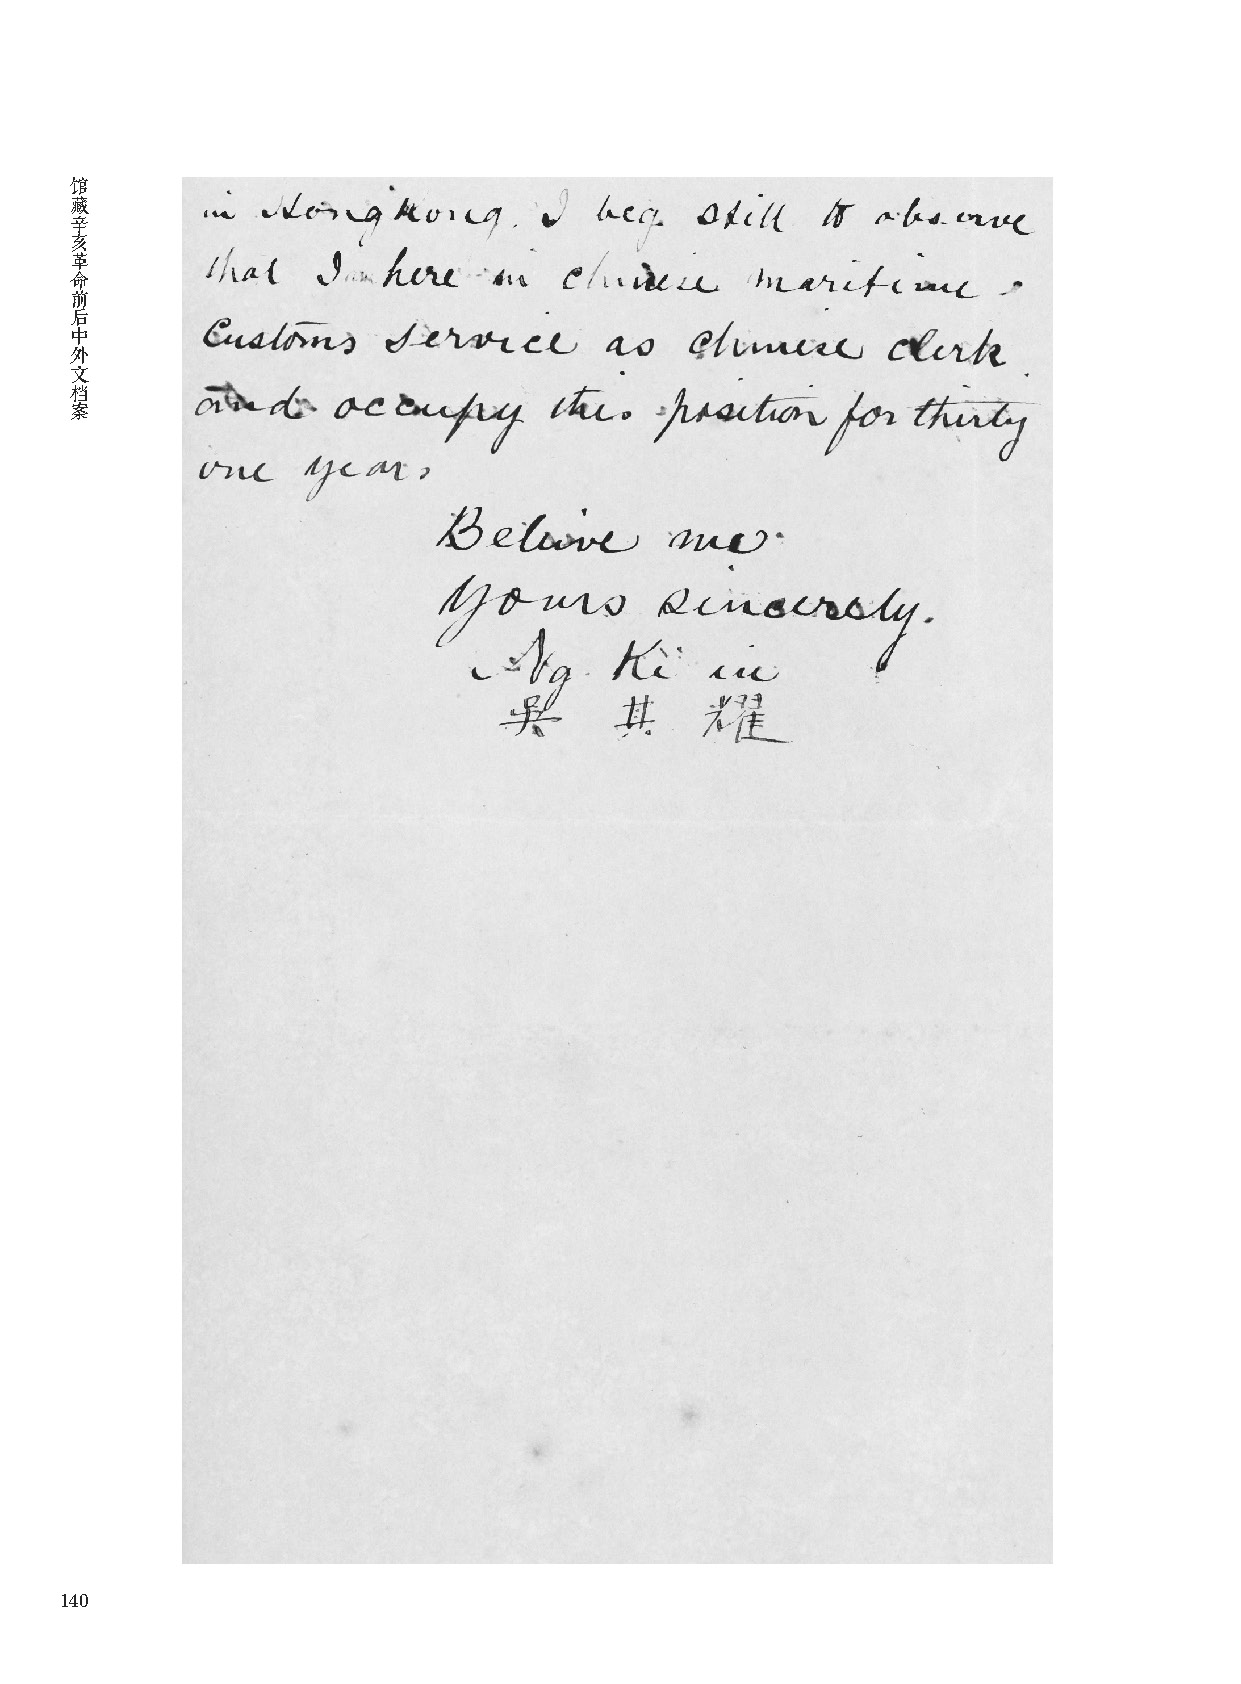 馆藏辛亥革命前后中外文档案
in HongKong. I beg still to observe
that I here in chinese maritime
Customs service as chinese clerk
and occupy this position for thirty
one years
Believe me
yours sincerely.
Ng Ki in
吳其耀
140